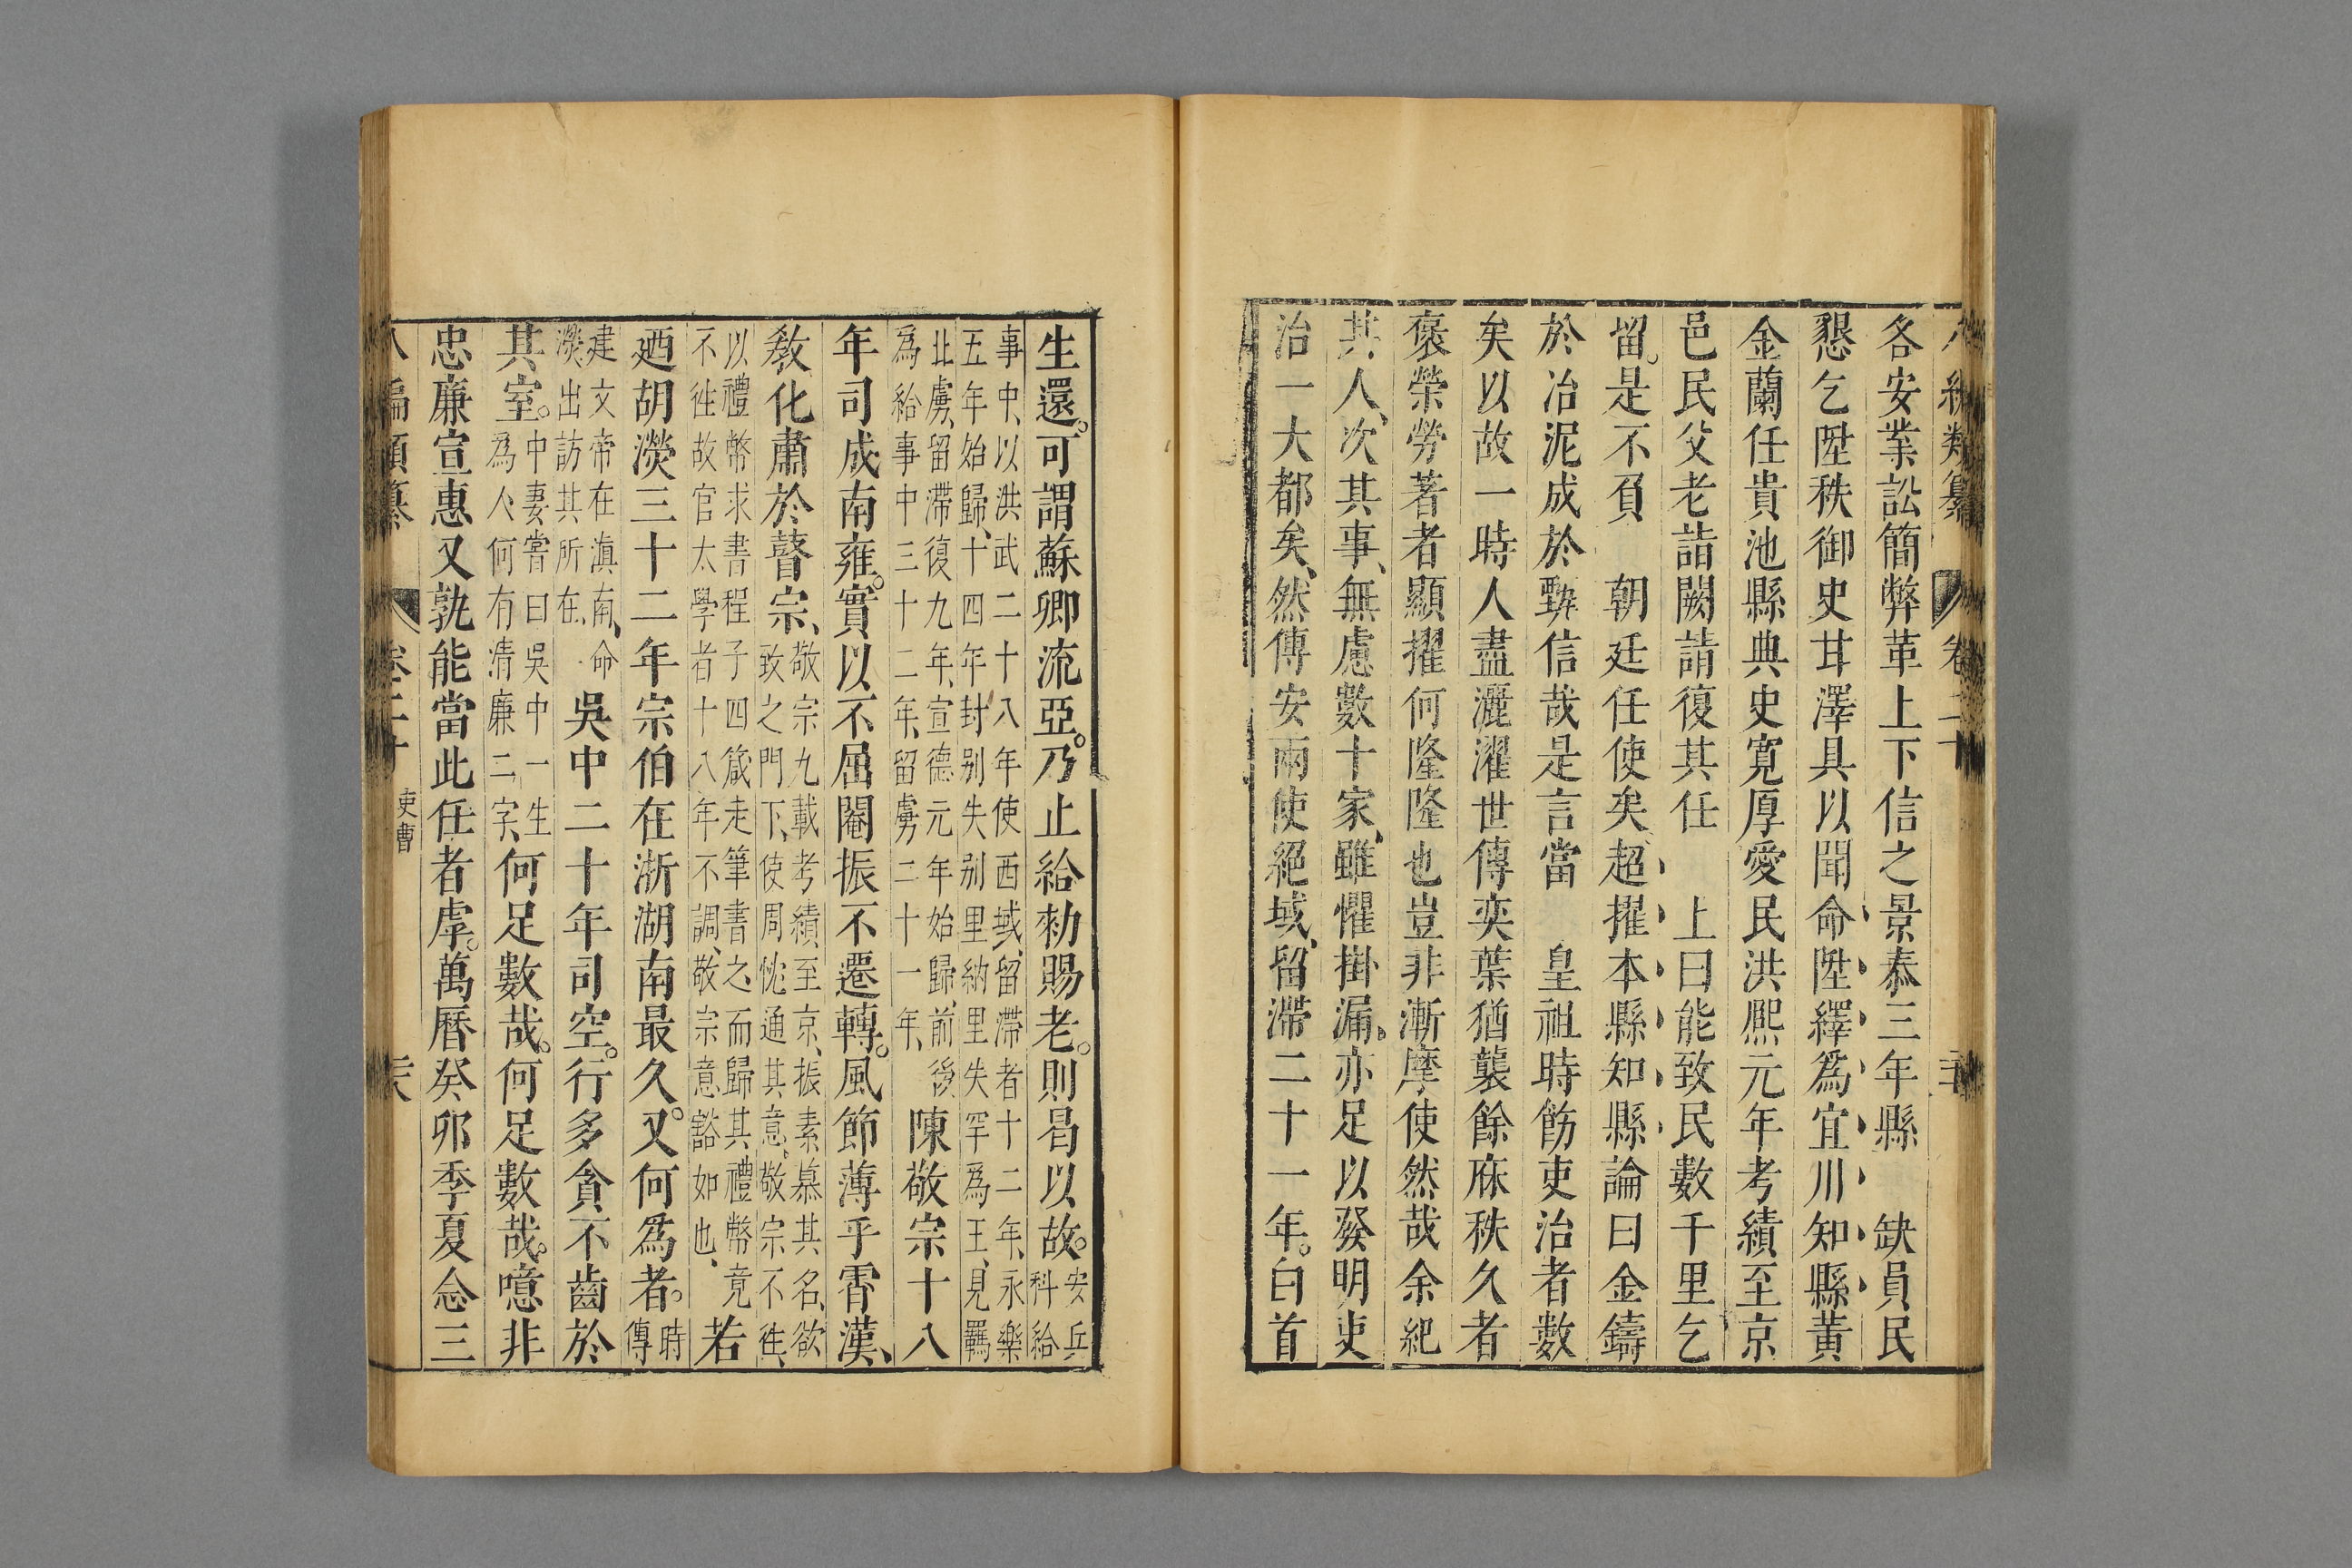 八編類纂 卷二十
各安業訟簡弊革上下信之景泰三年縣 缺員民
懇乞陞秩御史甘澤具以聞命陞繹爲宜川知縣黃
金蘭任貴池縣典史寬厚愛民洪熈元年考績至京
邑民父老詣闕請復其任 上曰能致民數千里乞
留是不負 朝廷任使矣超擢本縣知縣論曰金鑄
於冶泥成於甄信哉是言當 皇祖時飭吏治者數
矣以故一時人盡灑濯世傳奕葉猶襲餘庥秩久者
褒榮勞著者顯擢何隆隆也豈非漸摩使然哉余紀
其人次其事無慮數十家雖懼掛漏亦足以發明吏
治一大都矣然傳安兩使絕域留滯二十一年白首
生還可謂蘇卿流亞乃止給勑賜老則曷以故安兵科給
事中以洪武二十八年使西域留滯者十二年永樂
五年始歸十四年封别失别里納里失罕爲王見羈
北虜留滯復九年宣德元年始歸前後
爲給事中三十二年留虜二十一年陳敬宗十八
年司成南雍實以不屈閹振不遷轉風節薄乎霄漢
教化肅於瞽宗敬宗九載考績至京振素慕其名欲
致之門下使周忱通其意敬宗不徃
以禮幣求書程子四箴走筆書之而歸其禮幣竟
不徃故官太學者十八年不調敬宗意豁如也若
廼胡濙三十二年宗伯在浙湖南最久又何爲者時傳
建文帝在滇南命
濙出訪其所在吳中二十年司空行多貪不齒於
其室中妻嘗曰吳中一生
爲人何有清廉二字何足數哉何足數哉噫非
忠廉宣惠又孰能當此任者虖萬曆癸卯季夏念三
八編類纂 卷二十 吏曹 三六